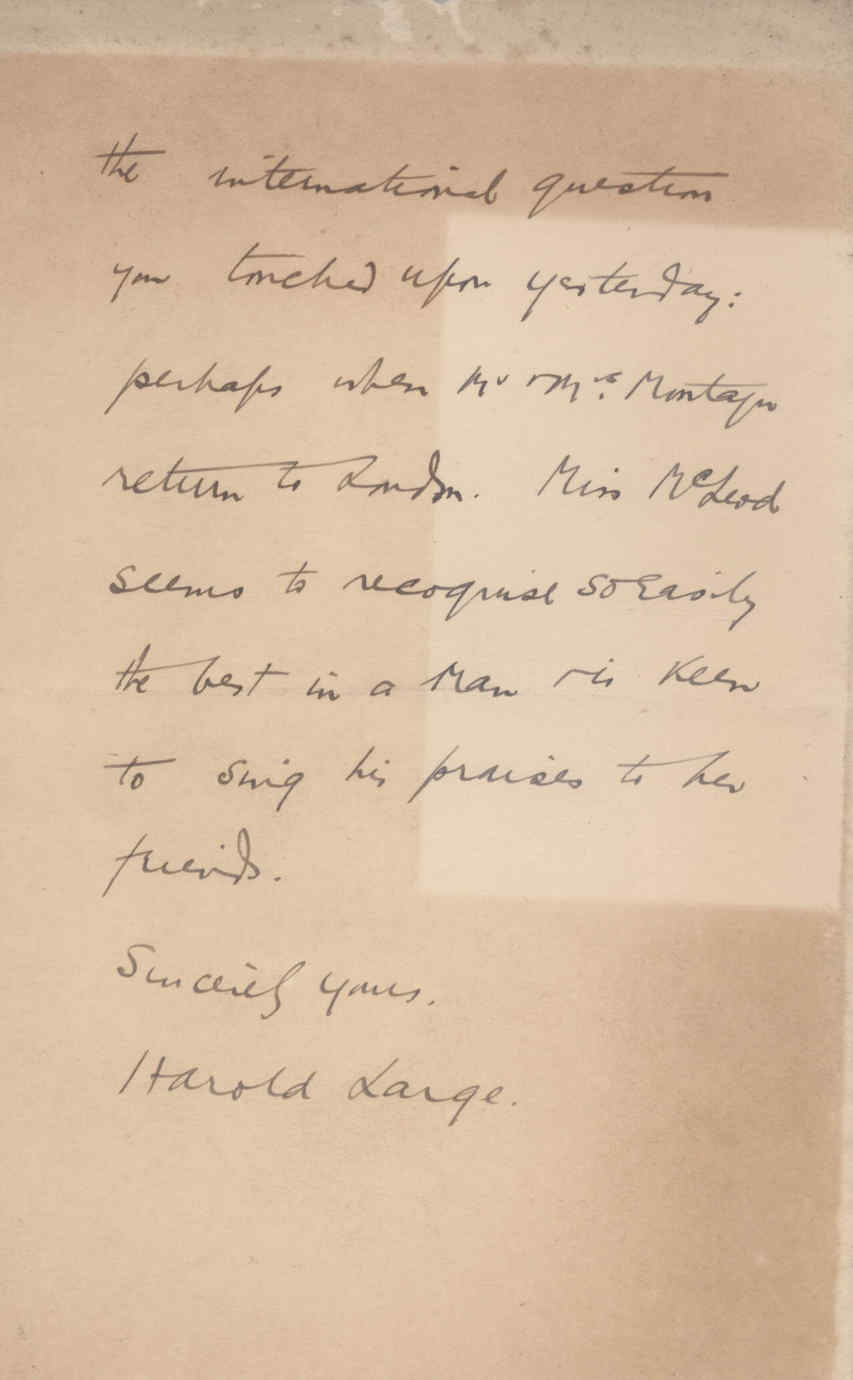 the international question
you touched upon yesterday:
perhaps when Mr & Mrs. Montagu
return to London. Miss McLeod
seems to recognise so easily
the best in a man & is keen
to sing his praises to her
friends.
Sincerely yours.
Harold Large.